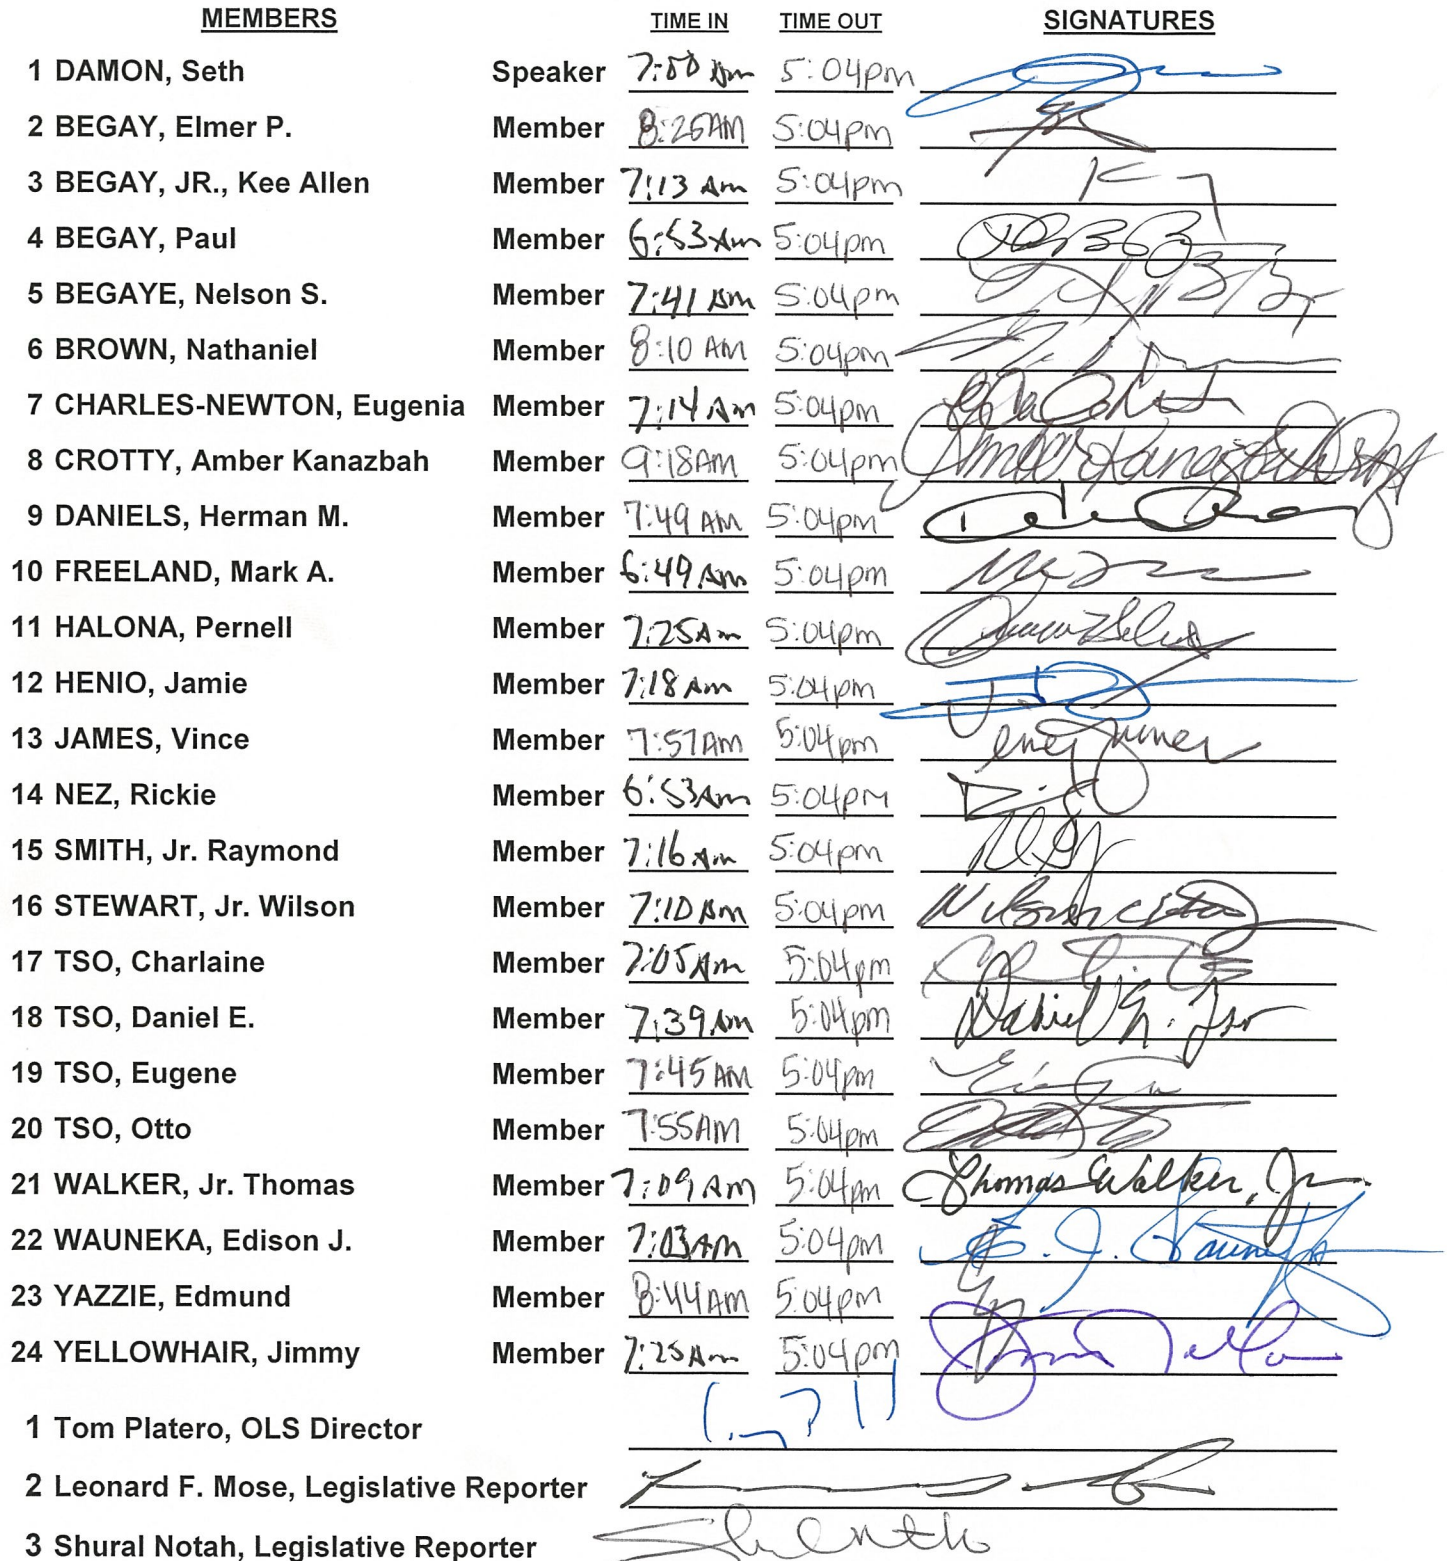 MEMBERS TIME IN TIME OUT SIGNATURES
1 DAMON, Seth Speaker 7:00 Am 5:04pm
2 BEGAY, Elmer P. Member 8:26AM 5:04pm
3 BEGAY, JR., Kee Allen Member 7:13 Am 5:04pm
4 BEGAY, Paul Member 6:53 Am 5:04pm
5 BEGAYE, Nelson S. Member 7:41 Am 5:04pm
6 BROWN, Nathaniel Member 8:10 AM 5:04pm
7 CHARLES-NEWTON, Eugenia Member 7:14 Am 5:04pm
8 CROTTY, Amber Kanazbah Member 9:18AM 5:04pm Amber Kanazbah Crotty
9 DANIELS, Herman M. Member 7:49 AM 5:04pm
10 FREELAND, Mark A. Member 6:49 Am 5:04pm
11 HALONA, Pernell Member 7:25Am 5:04pm
12 HENIO, Jamie Member 7:18 Am 5:04pm
13 JAMES, Vince Member 7:57AM 5:04pm
14 NEZ, Rickie Member 6:53Am 5:04pm
15 SMITH, Jr. Raymond Member 7:16 Am 5:04pm
16 STEWART, Jr. Wilson Member 7:10 Am 5:04pm
17 TSO, Charlaine Member 7:05 Am 5:04pm
18 TSO, Daniel E. Member 7:39 Am 5:04pm Daniel E. Tso
19 TSO, Eugene Member 7:45 AM 5:04pm
20 TSO, Otto Member 7:55AM 5:04pm
21 WALKER, Jr. Thomas Member 7:09 AM 5:04pm Thomas Walker, Jr.
22 WAUNEKA, Edison J. Member 7:03 Am 5:04pm E. J. Wauneka
23 YAZZIE, Edmund Member 8:44AM 5:04pm
24 YELLOWHAIR, Jimmy Member 7:25 Am 5:04pm
1 Tom Platero, OLS Director
2 Leonard F. Mose, Legislative Reporter
3 Shural Notah, Legislative Reporter